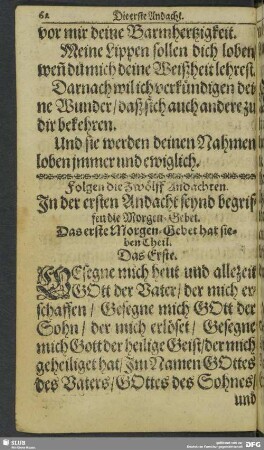 62 Die erste Andacht.
vor mir deine Barmhertzigkeit.
Meine Lippen sollen dich loben
weñ du mich deine Weißheit lehrest.
Darnach wil ich verkündigen dei
ne Wunder/ daß sich auch andere zu
dir bekehren.
Und sie werden deinen Nahmen
loben jmmer und ewiglich.
Folgen die Zwölff Andachten.
In der ersten Andacht seynd begrif-
fen die Morgen-Gebet.
Das erste Morgen-Gebet hat sie-
ben Theil.
Das Erste.
GEsegne mich heut und allezeit
GOtt der Vater/ der mich er-
schaffen/ Gesegne mich GOtt der
Sohn/ der mich erlöset/ Gesegne
mich Gott der heilige Geist/ der mich
geheiliget hat/ Im Namen GOttes
des Vaters/ GOttes des Sohnes/
und
SLUB
DFG